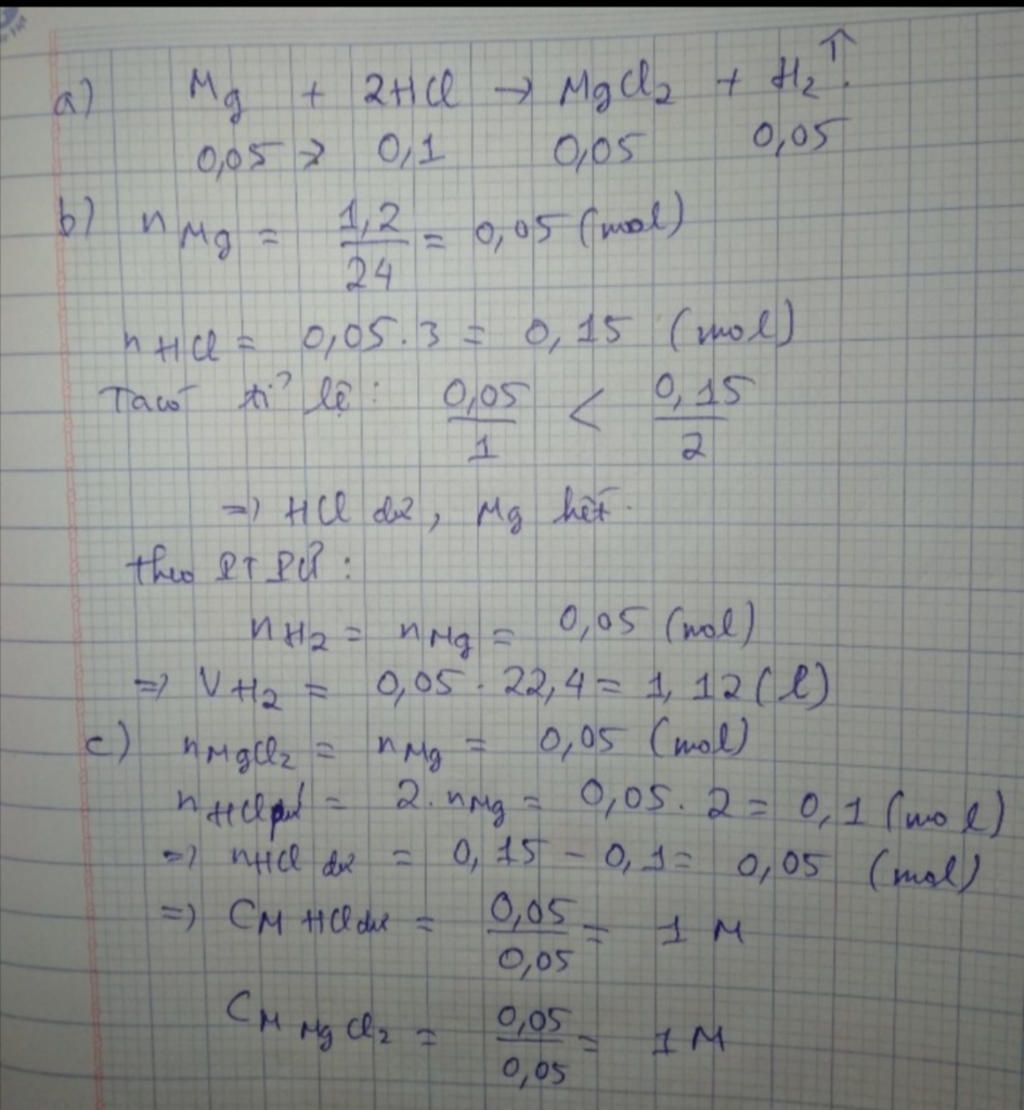 a) Mg + 2HCl → MgCl₂ + H₂↑.
0,05 → 0,1 0,05 0,05
b) nMg = 1,2/24 = 0,05 (mol)
nHCl = 0,05.3 = 0,15 (mol)
Ta có tỉ lệ: 0,05/1 < 0,15/2
=> HCl dư, Mg hết.
theo PTPƯ:
nH₂ = nMg = 0,05 (mol)
=> VH₂ = 0,05.22,4 = 1,12 (l)
c) nMgCl₂ = nMg = 0,05 (mol)
nHCl pư = 2.nMg = 0,05.2 = 0,1 (mol)
=> nHCl dư = 0,15 - 0,1 = 0,05 (mol)
=> CM HCl dư = 0,05/0,05 = 1 M
CM MgCl₂ = 0,05/0,05 = 1 M